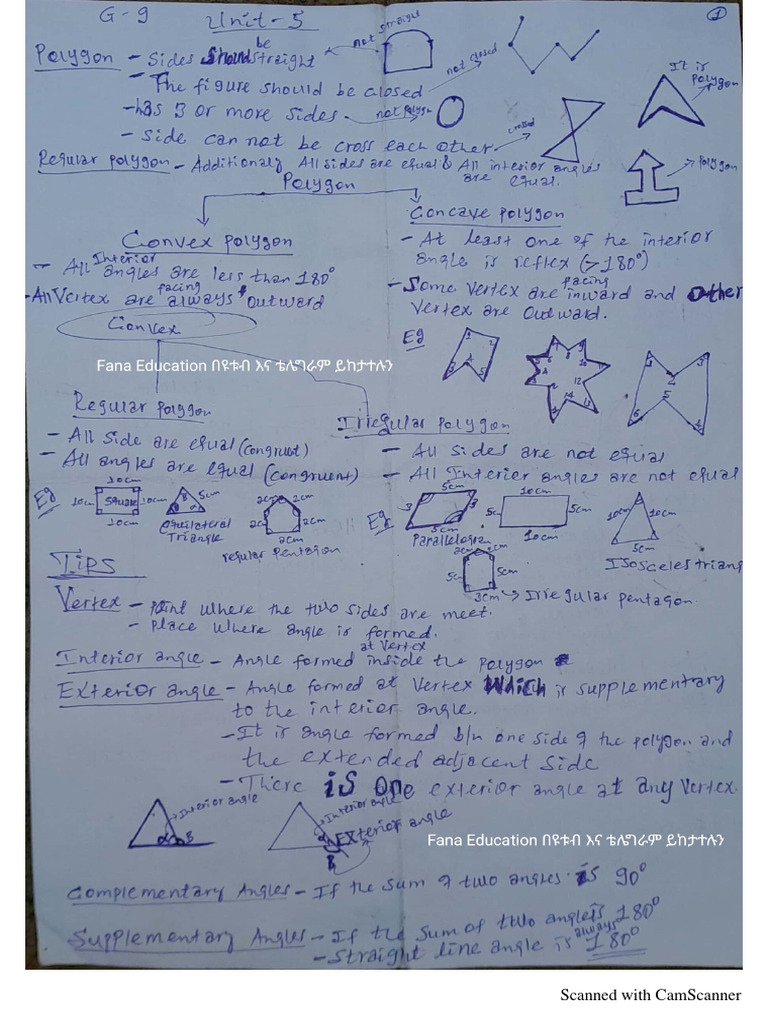 G - 9 Unit - 5 1
Polygon - Sides should be straight not straight
- The figure should be closed not closed
- has 3 or more sides - not polygn
- Side can not be cross each other crossed
It is polygon
polygon
Regular polygon - Additionaly All sides are equal & All interior angles are equal.
Polygon
Convex polygon
- All Interior angles are less than 180°
- All Vertex are always facing outward
Concave polygon
- At least one of the interior
angle is reflex (>180°)
- Some vertex are facing inward and Other
vertex are outward.
Convex
Eg
Fana Education በዩቱብ እና ቴሌግራም ይከታተሉን
Regular polygon
- All side are equal (congruet)
- All angles are equal (congruent)
Eg 10cm 10cm Square 10cm 10cm
5cm Equilateral Triangle
2cm 2cm 2cm 2cm 2cm regular pentagon
Irregular polygon
- All sides are not equal
- All Interier angles are not equal
Eg 5cm 3 3 5cm Parallelogram
10cm 5c 5cm 10cm
10cm 10cm 5cm Isosceles triang
5c 5cm 3cm → Irregular pentagon.
TIPS
Vertex - point where the two sides are meet.
- place where angle is formed.
Interior angle - Angle formed inside the polygon at vertex
Exterior angle - Angle formed at vertex which is supplementary
to the interior angle.
- It is angle formed b/n one side of the polygon and
the extended adjacent side
- There is one exterior angle at any vertex.
Interior angle α B
Interior angle α Exterior angle B
Fana Education በዩቱብ እና ቴሌግራም ይከታተሉን
Complementary Angles - If the sum of two angles is 90°
Supplementary Angles - If the sum of two angle is 180°
- straight line angle is always 180°
Scanned with CamScanner